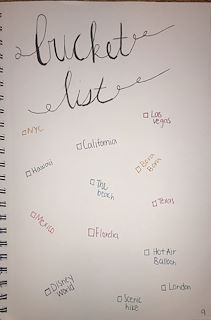 bucket
list
Las
vegas
NYC
California
Hawaii
Bora
Bora
The
beach
Texas
Mexico
Flordia
Hot Air
Balloon
Disney
World
London
Scenic
hike
9